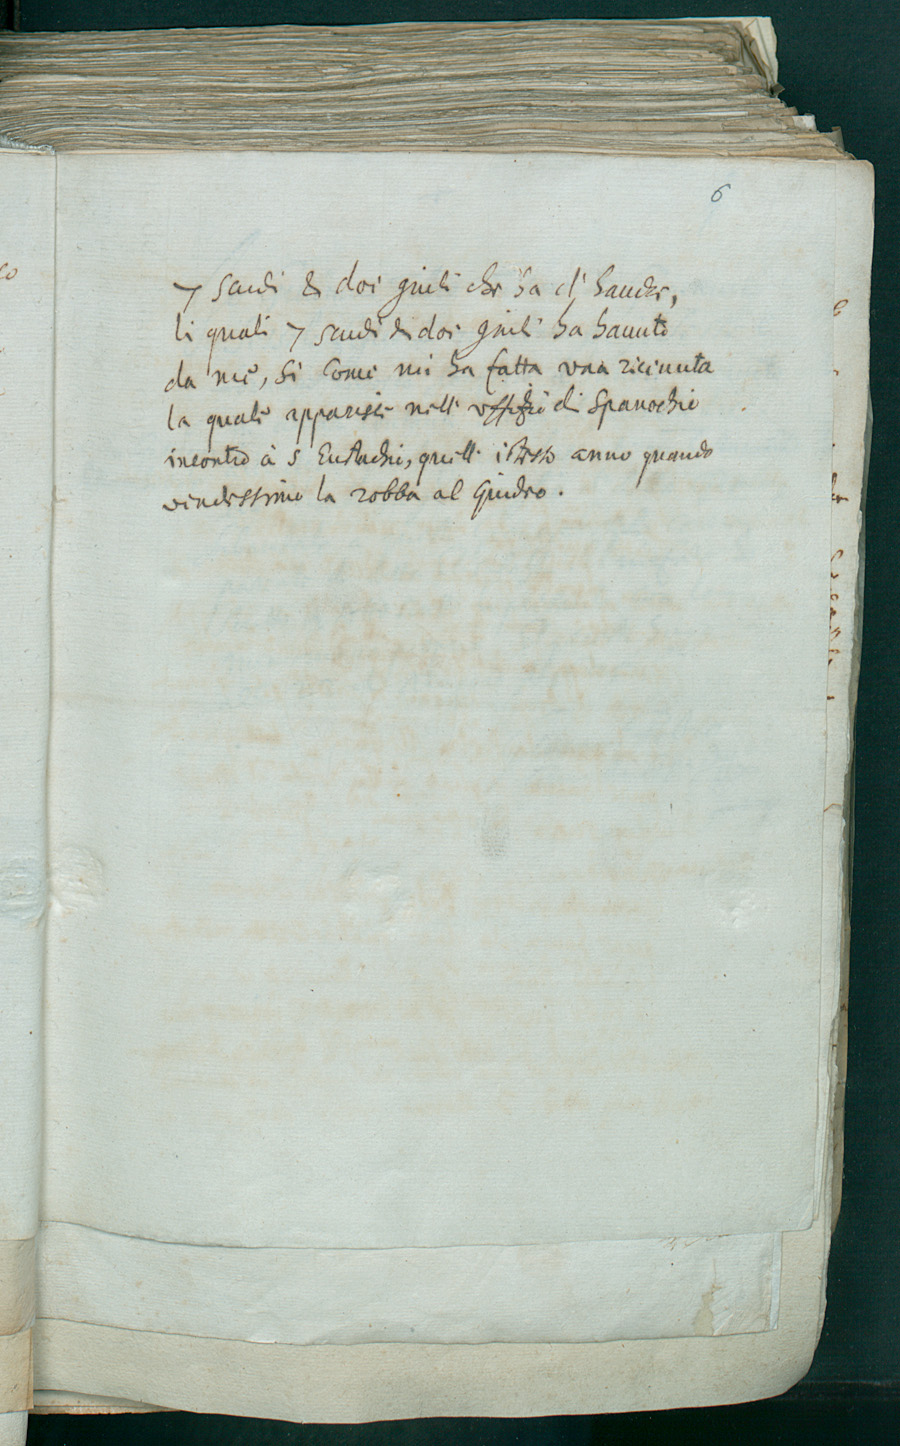 6
7 scudi & doi giuli che ha d' hauere,
li quali 7 scudi & doi giuli ha hauuto
da me, si come mi ha fatta vna riceuuta
la quale apparisce nell' offitio di Spanochie
incontro à S Eustachi, quell' istesso anno quando
vendessimo la robba al Giudeo.